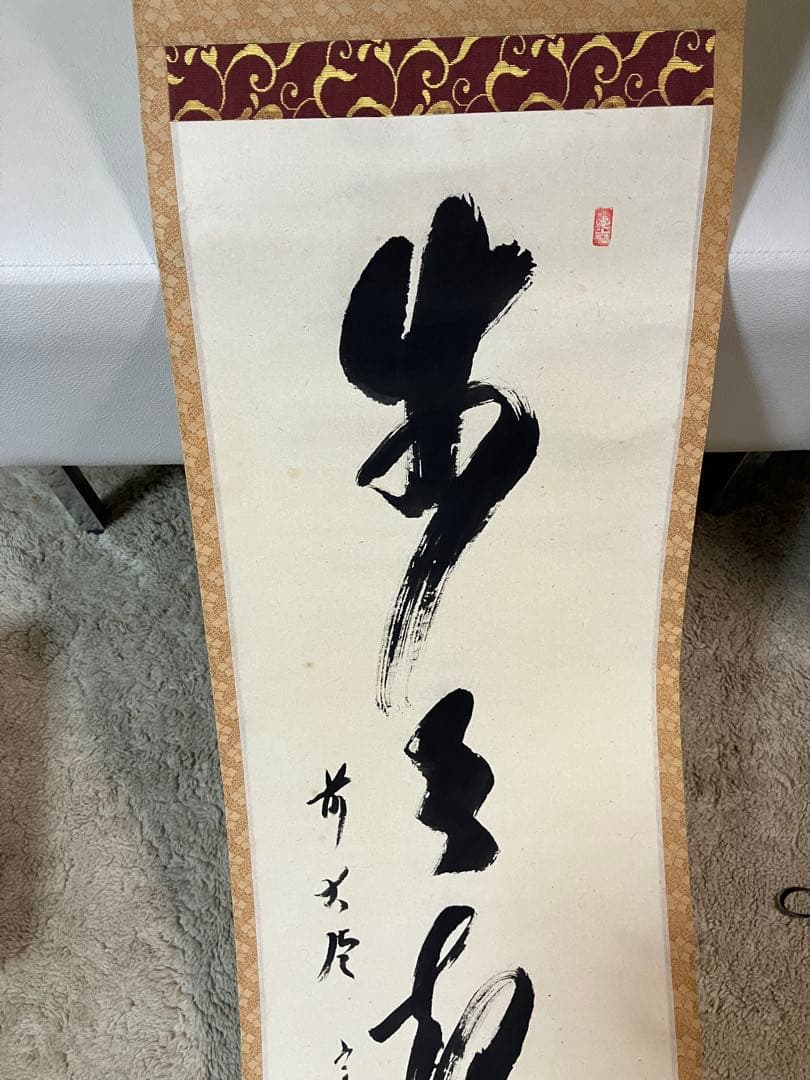 歩々起
前大徳